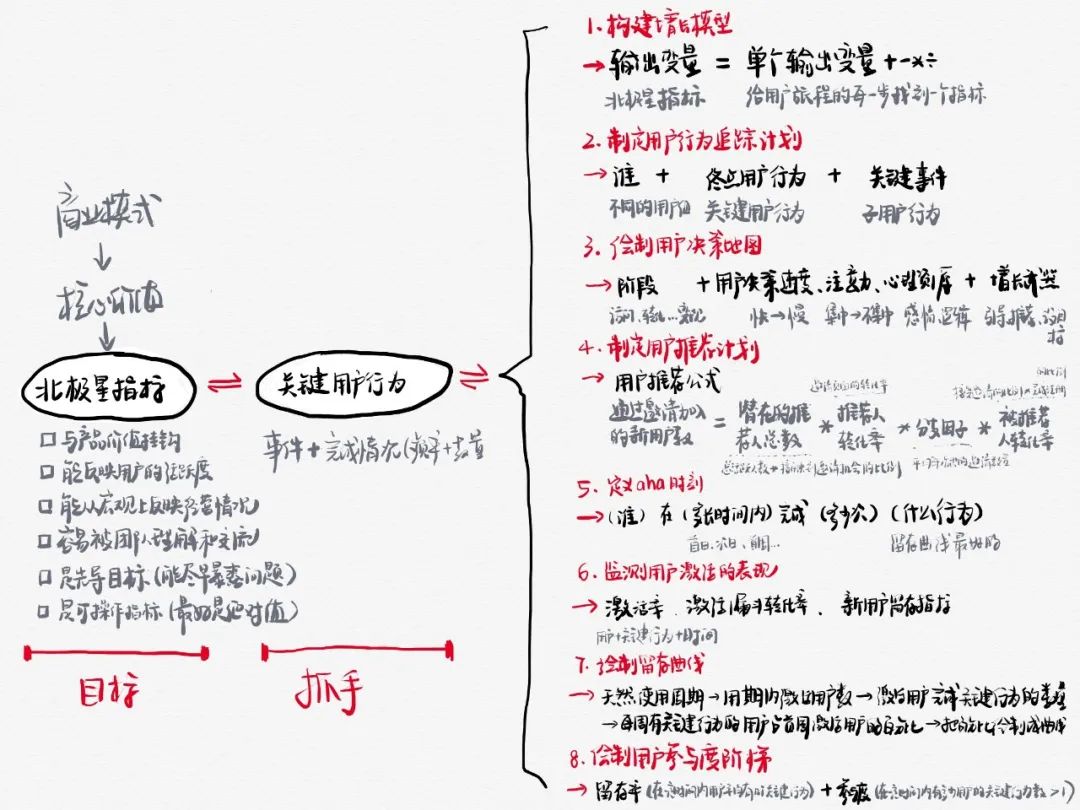 商业模式
核心价值
北极星指标
关键用户行为
与产品价值挂钩
能反映用户的活跃度
能从宏观上反映经营情况
容易被团队理解和交流
是先导目标(能尽早暴露问题)
是可操作指标(最好是绝对值)
事件+完成情况(频率+数量
目标
抓手
1.构建增长模型
→输出变量 = 单个输出变量+-×÷
北极星指标 给用户旅程的每一步找到一个指标
2.制定用户行为追踪计划
→谁 + 终点用户行为 + 关键事件
不同的用户组 关键用户行为 子用户行为
3.绘制用户决策地图
→阶段 +用户决策速度、注意力、心理 + 增长
访问、转化… 快→慢 集中→不集中 感情逻辑 引导推荐、设目标
4.制定用户推荐计划
→用户推荐公式
通过邀请加入的新用户数 = 潜在的推荐人总数 * 推荐人转化率 * 分支因子 * 被推荐人转化率
邀请页面的转化率
5.定义aha时刻
→(谁)在(多长时间内)完成(多少次)(什么行为)
首日、次日、首周… 留存曲线最好的
6.监测用户激活的表现
→激活率、激活漏斗转化率、新用户留存指标
用户+关键行为+时间
7.绘制留存曲线
→天然使用周期→周期内激活用户数→激活用户完成关键行为的数量
→每周有关键行为的用户占首周激活用户的百分比→把百分比绘制成曲线
8.绘制用户参与度阶梯
→留存率(在 时间内用户 有关键行为)+ (在 时间内 用户的关键行为数>1)